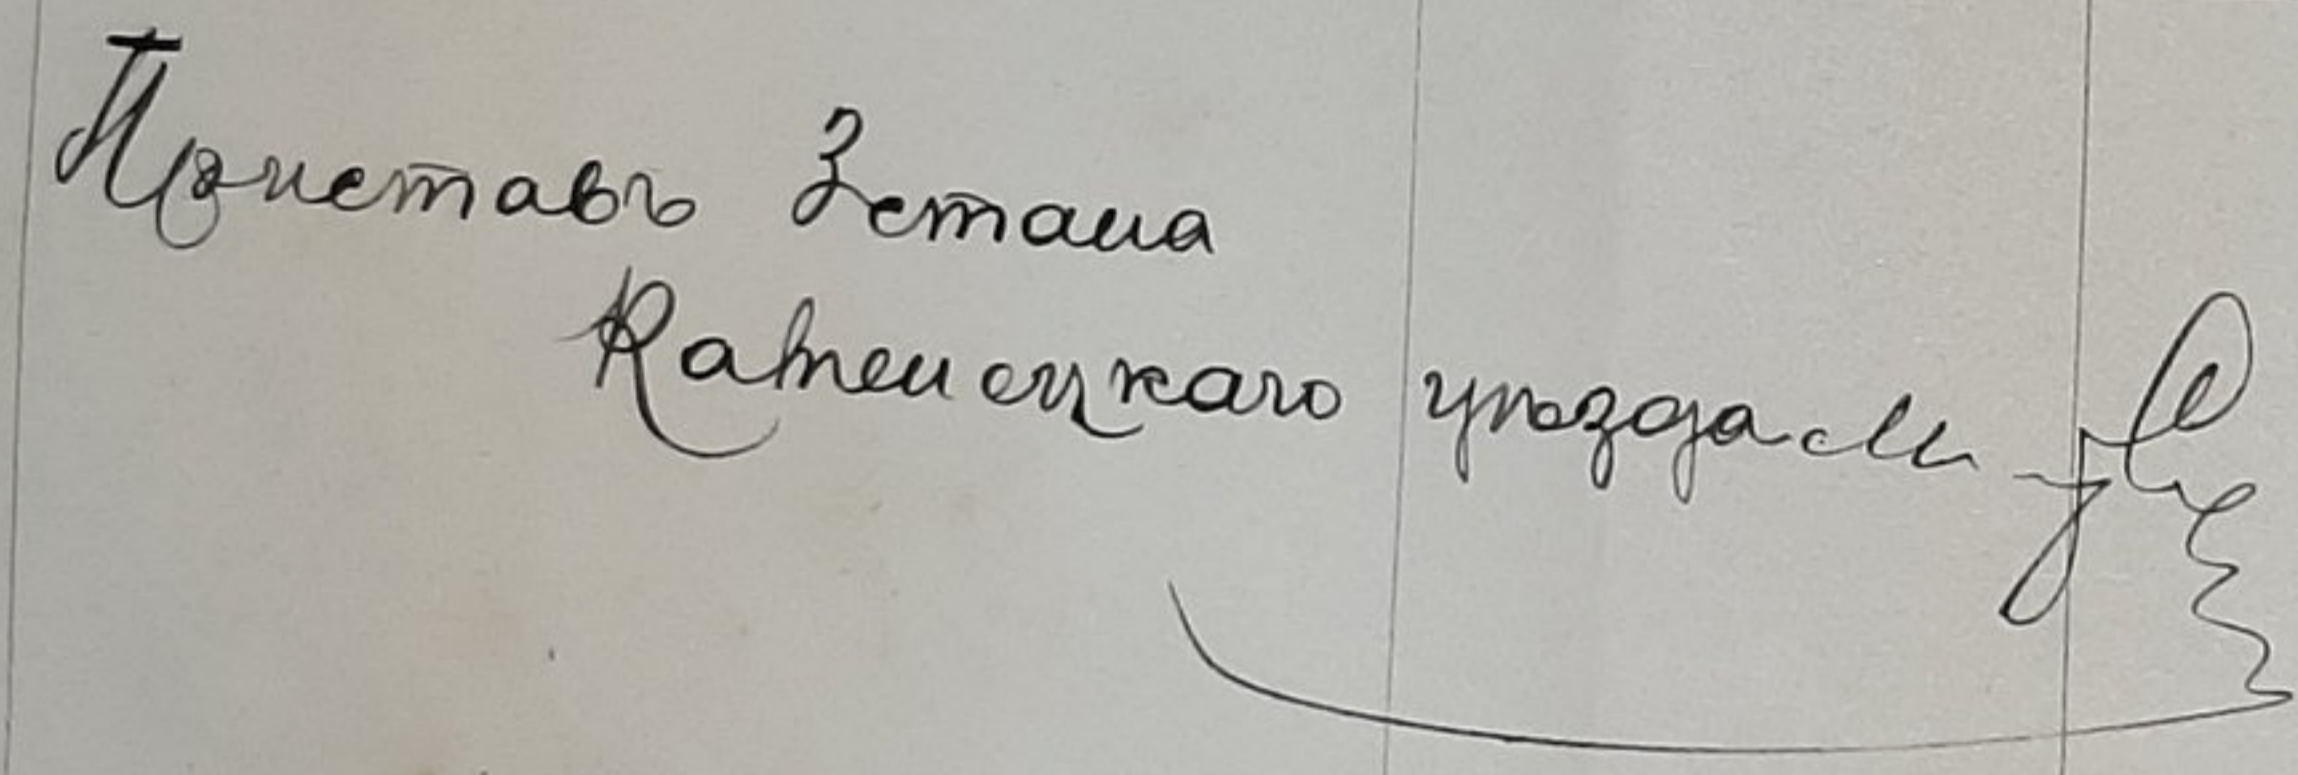 Приставъ 3 стана
Каменецкаго уѣзда